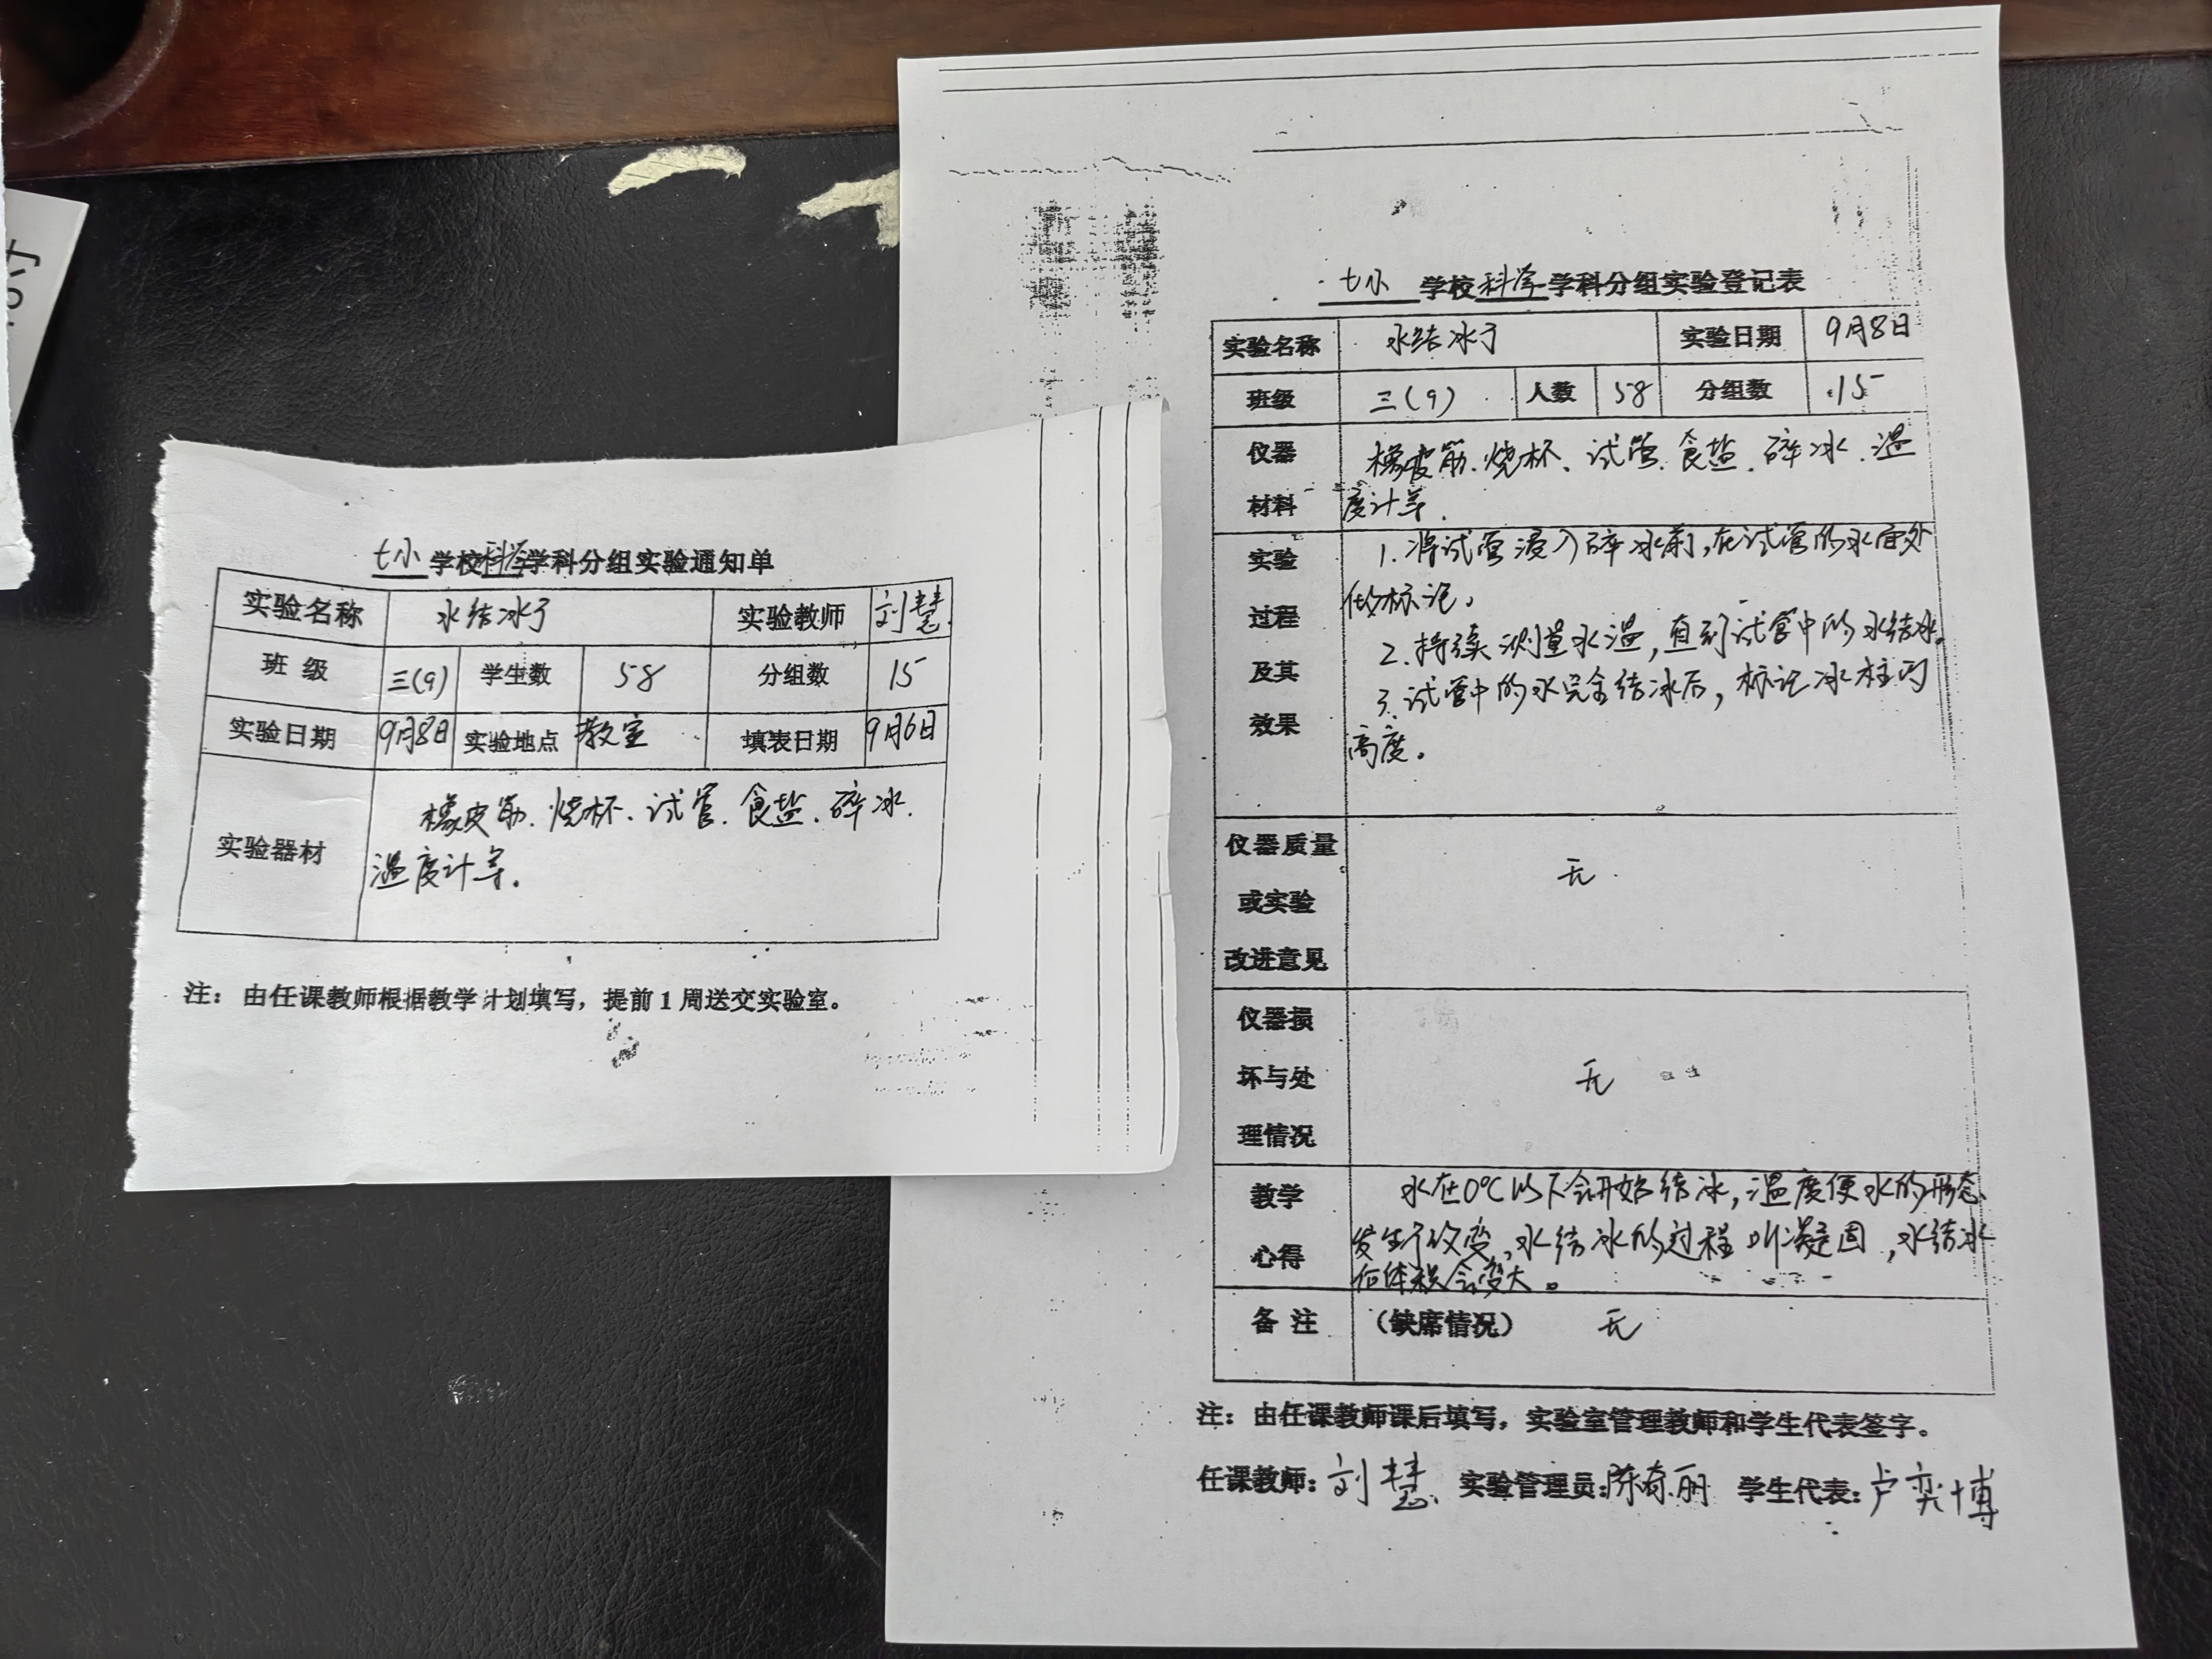 七小 学校科学学科分组实验通知单
实验名称 水结冰了 实验教师 刘慧
班 级 三(9) 学生数 58 分组数 15
实验日期 9月8日 实验地点 教室 填表日期 9月6日
实验器材 橡皮筋、烧杯、试管、食盐、碎冰、
温度计等。
注：由任课教师根据教学计划填写，提前1周送交实验室。
七小 学校科学学科分组实验登记表
实验名称 水结冰了 实验日期 9月8日
班级 三(9) 人数 58 分组数 15
仪器
材料
橡皮筋、烧杯、试管、食盐、碎冰、温
度计等。
实验
过程
及其
效果
1.将试管浸入碎冰前,在试管的水面处
做标记。
2.持续测量水温,直到试管中的水结冰。
3.试管中的水完全结冰后,标记冰柱的
高度。
仪器质量
或实验
改进意见
无
仪器损
坏与处
理情况
无
教学
心得
水在0℃以下会开始结冰,温度使水的形态
发生了改变,水结冰的过程叫凝固,水结冰
后体积会变大。
备 注 (缺席情况) 无
注：由任课教师课后填写，实验室管理教师和学生代表签字。
任课教师：刘慧 实验管理员：陈奇丽 学生代表：卢奕博